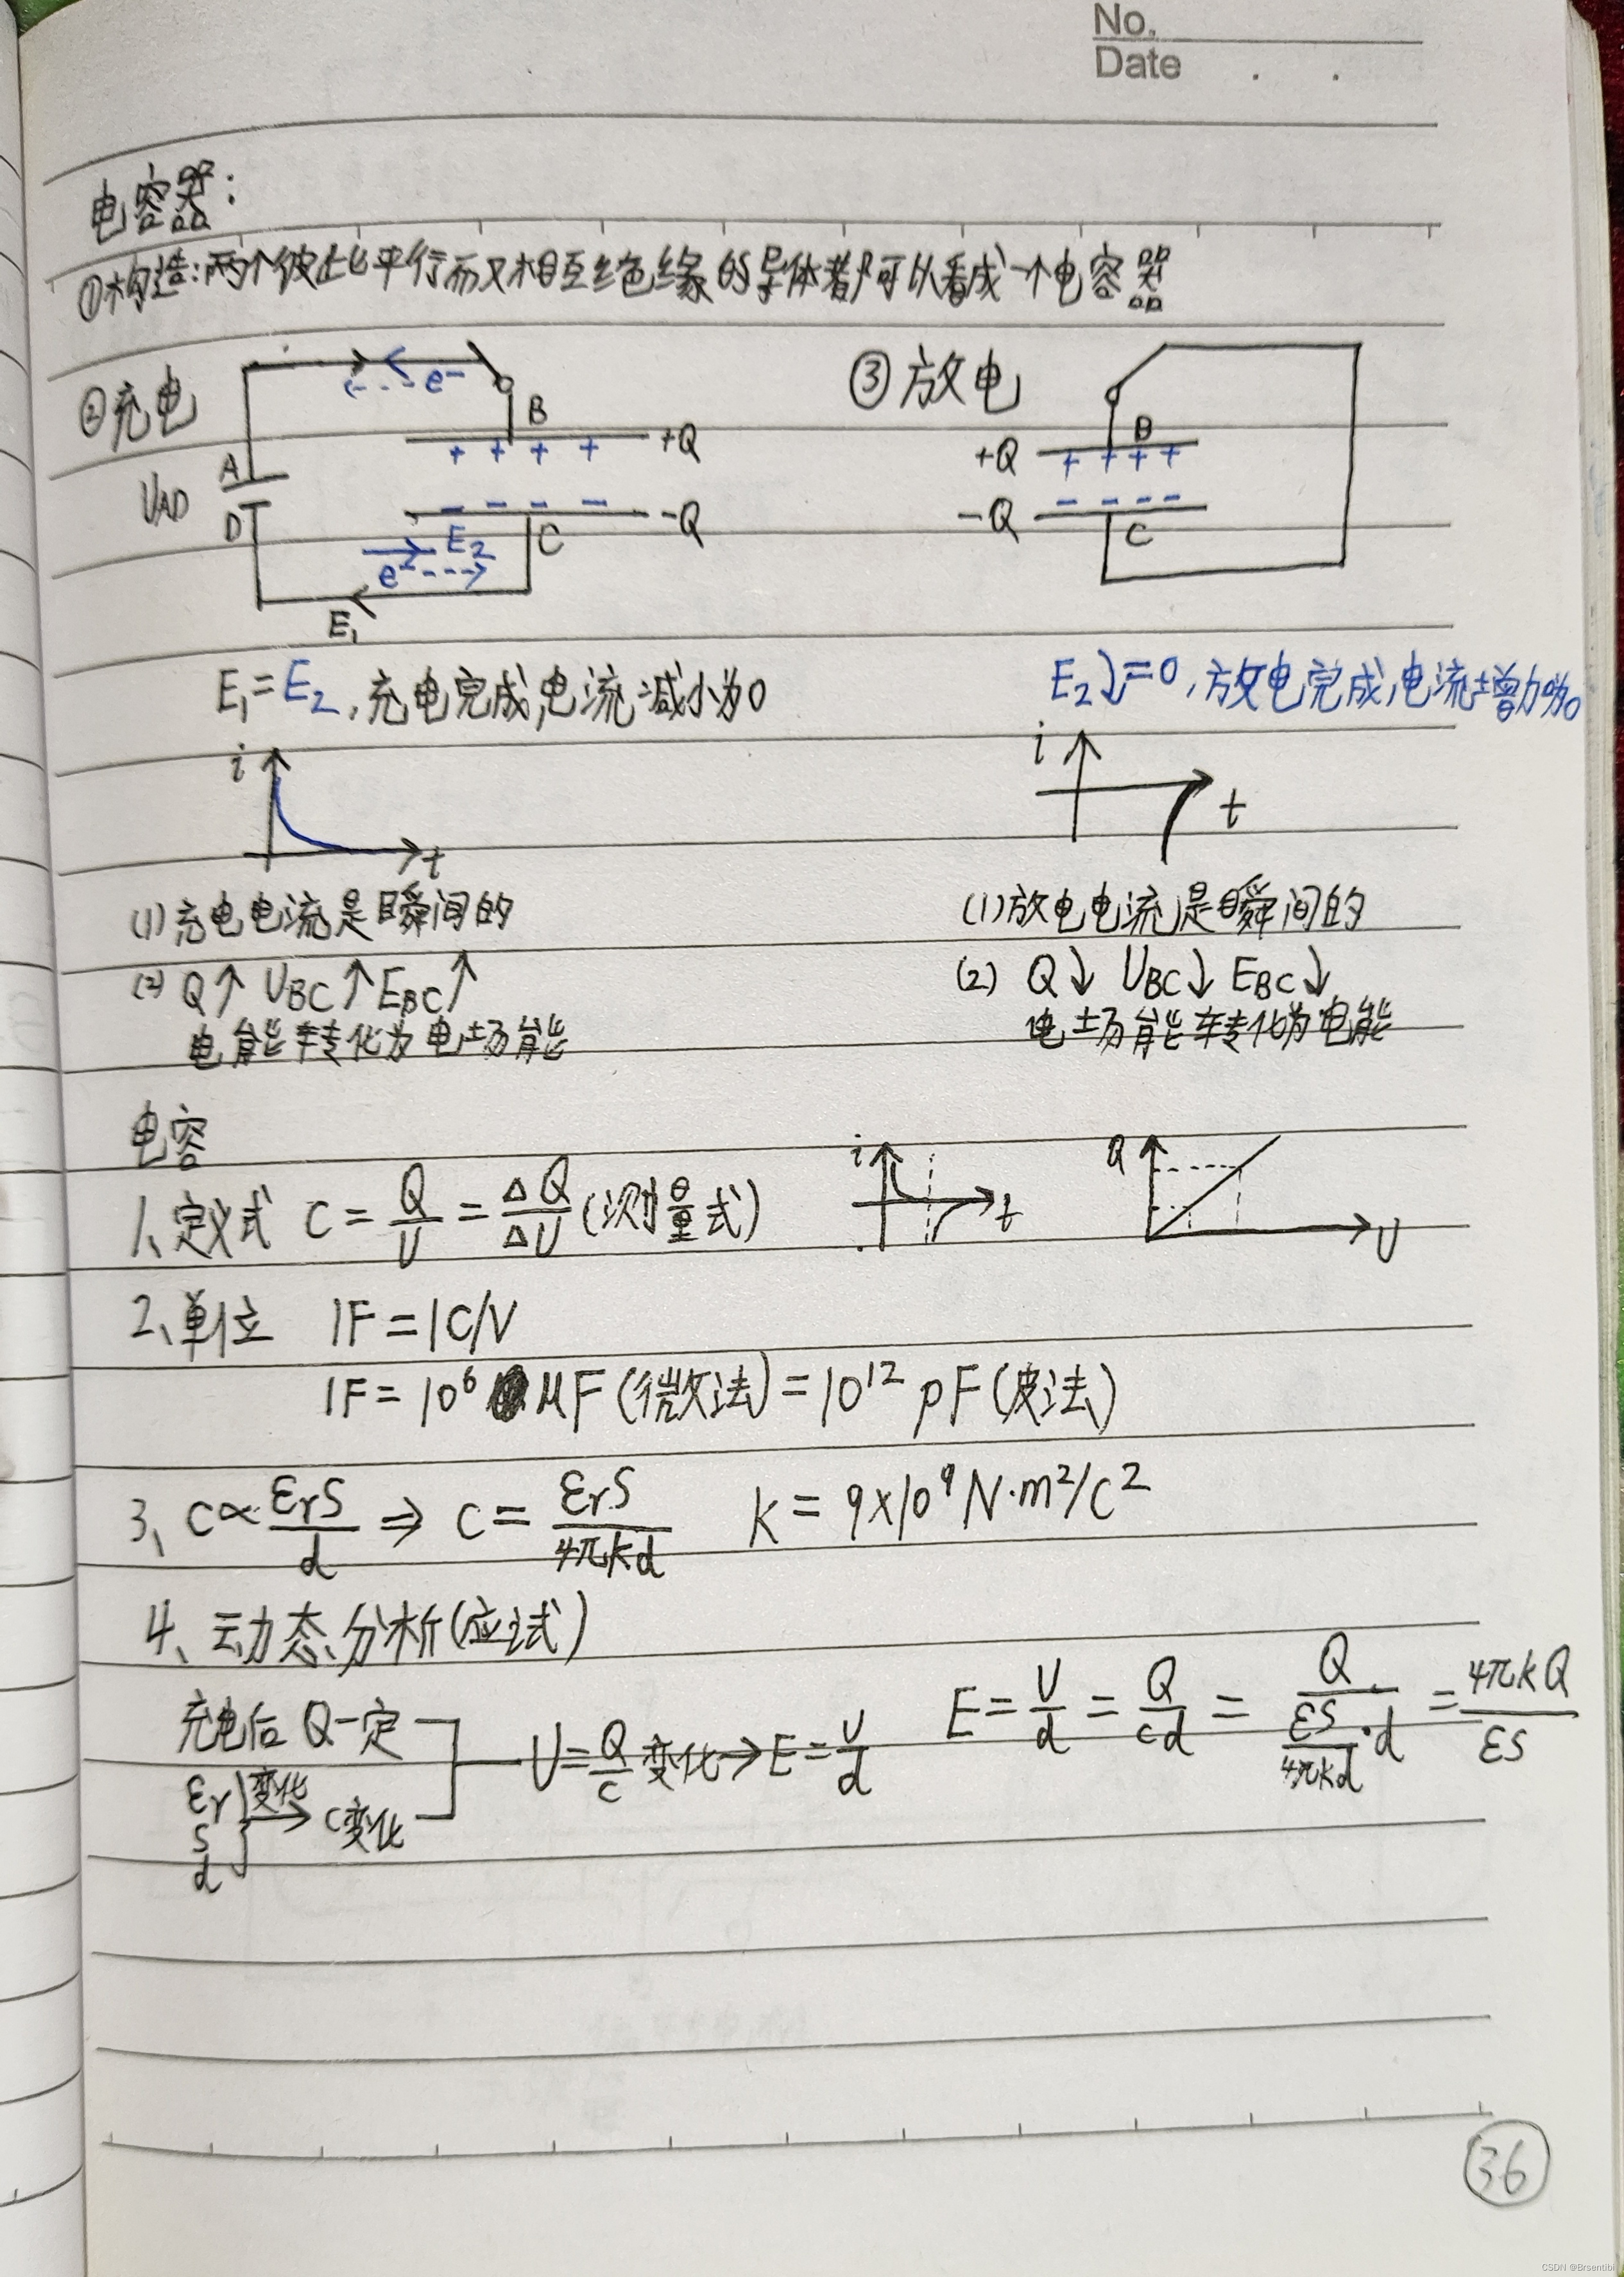 No.
Date . .
电容器:
①构造:两个彼此平行而又相互绝缘的导体都可以看成一个电容器
②充电
e⁻
B
+ + + + +Q
A
UAD
D
- - - - -Q
E₂
C
e⁻
E₁
③放电
B
+Q + + + +
-Q - - - -
C
E₁=E₂,充电完成,电流减小为0
E₂↓=0,放电完成,电流增加为0
i
t
i
t
(1)充电电流是瞬间的
(2) Q↑ UBC↑ EBC↑
电能转化为电场能
(1)放电电流是瞬间的
(2) Q↓ UBC↓ EBC↓
电场能转化为电能
电容
1、定义式 C=Q/U=ΔQ/ΔU(测量式)
i
t
Q
U
2、单位 1F=1C/V
1F=10⁶ μF(微法)=10¹² pF(皮法)
3、C∝εrS/d ⇒ C=εrS/4πkd k=9×10⁹N·m²/C²
4、动态分析(应试)
充电后 Q一定
εr
S
d
变化→C变化
U=Q/C变化→E=U/d
E=U/d=Q/Cd=Q/(εS/4πkd·d)=4πkQ/εS
36
CSDN @Brsentibi